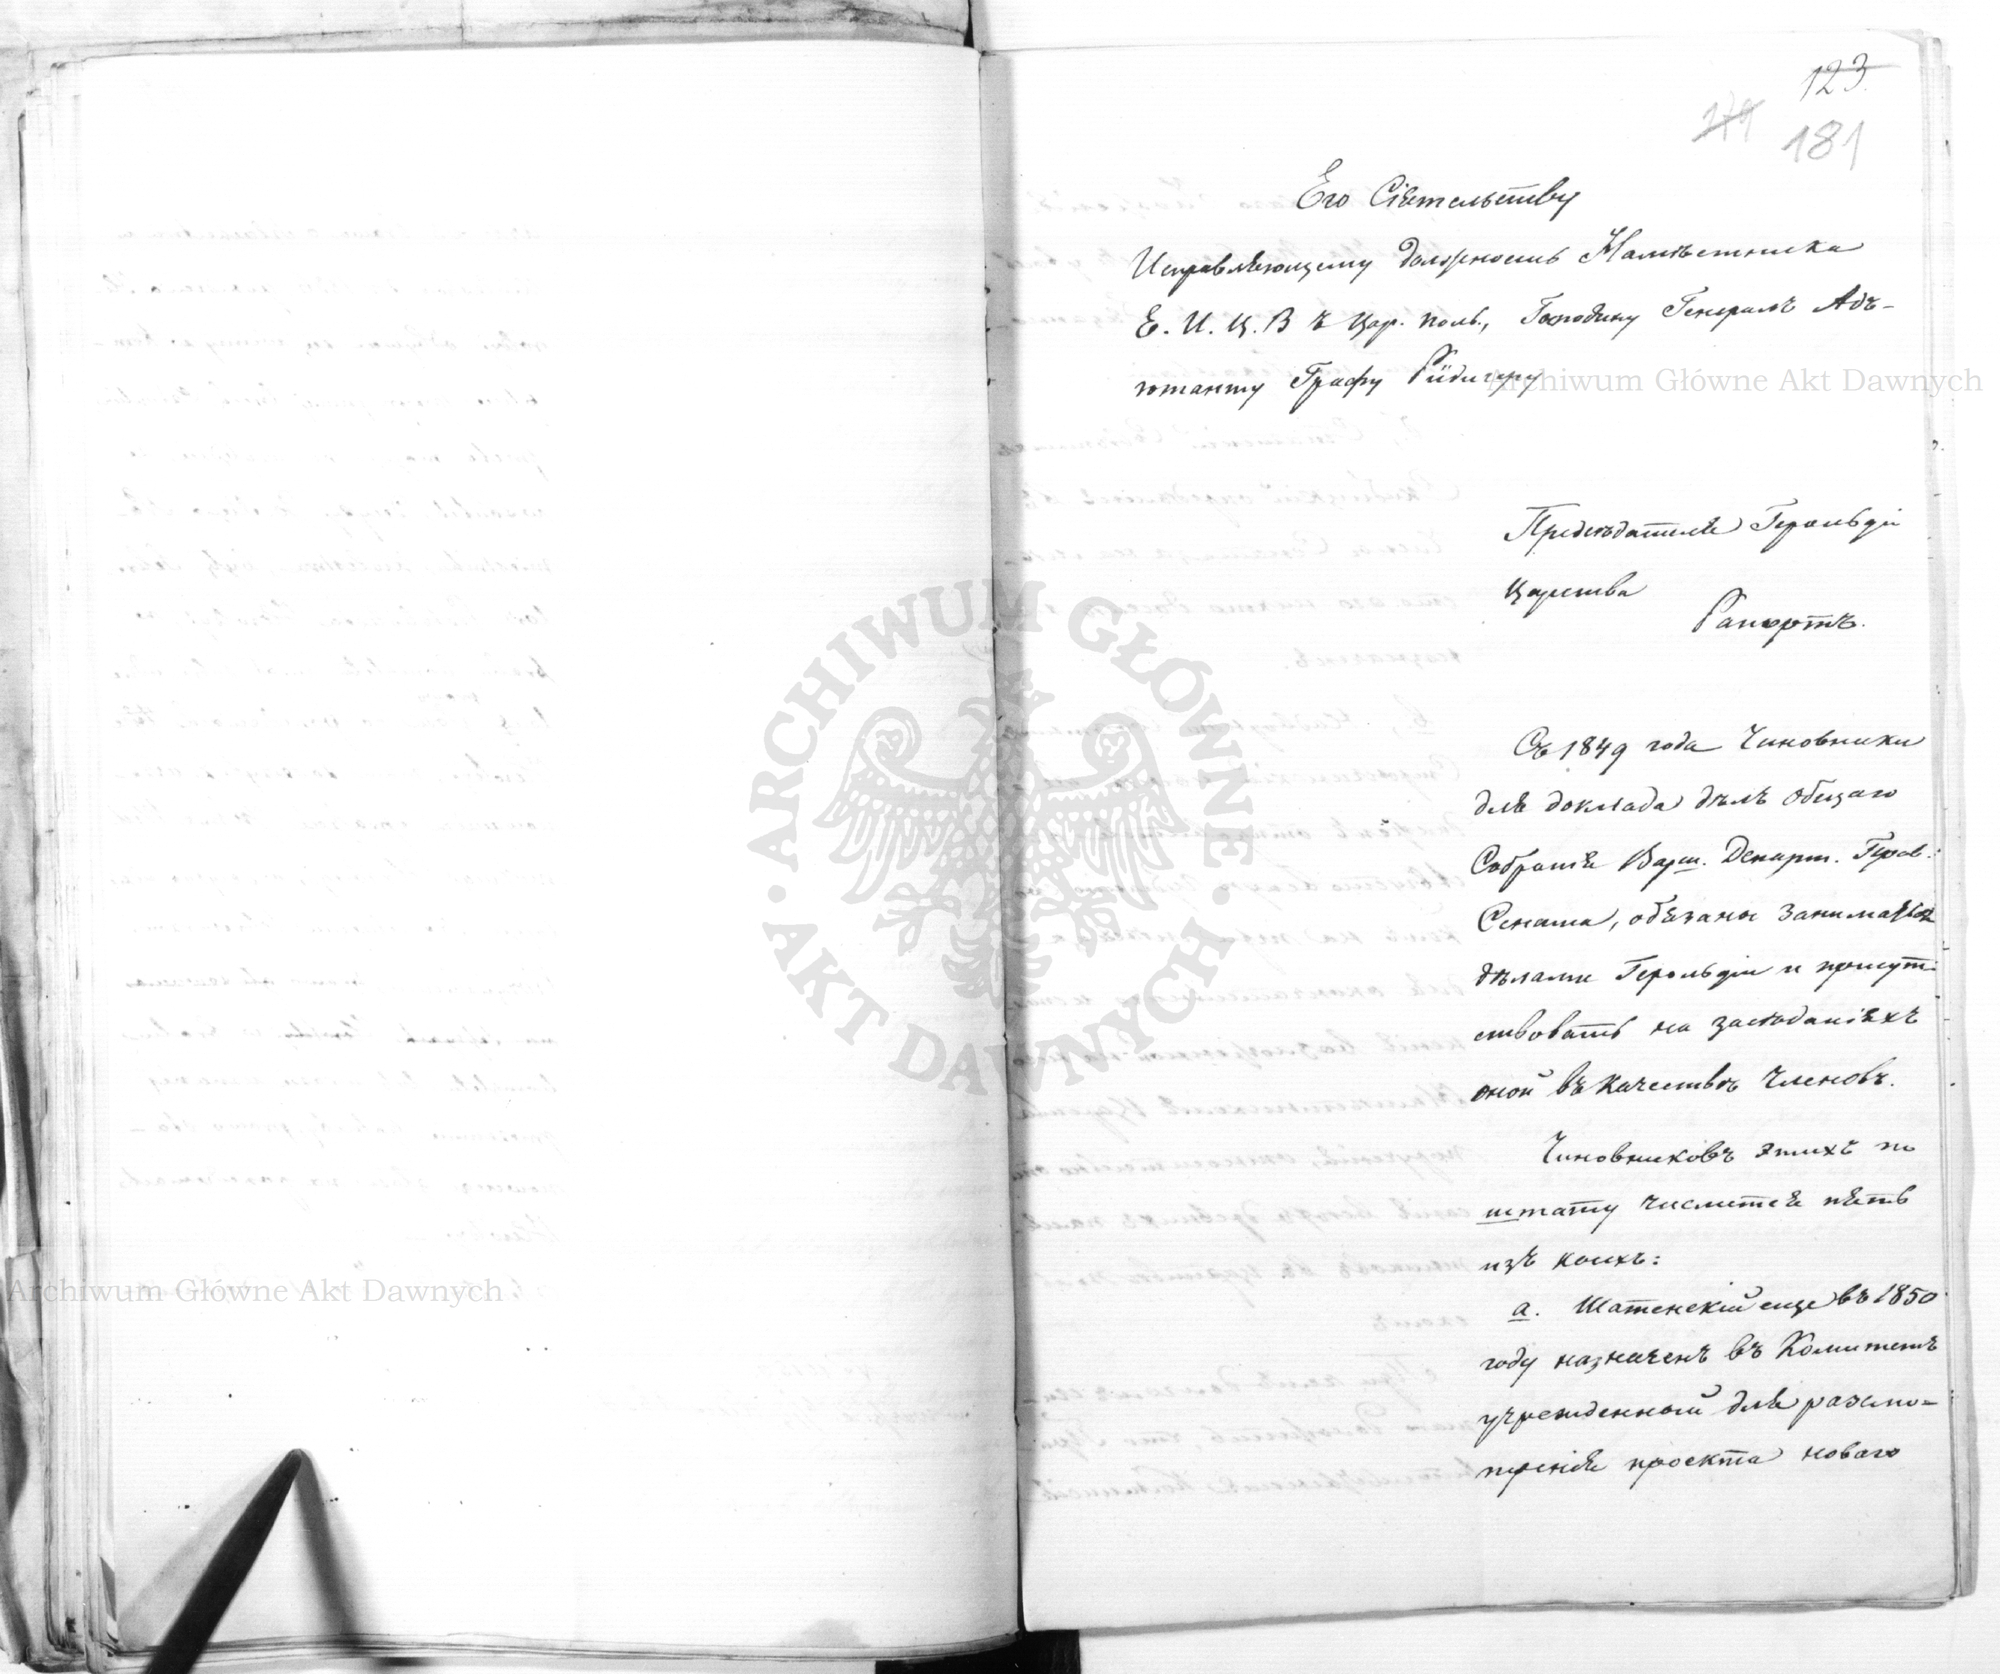 123.
179
181
Его Сіятельству
Исправляющему должность Намѣстника
Е. И. Ц. В въ Цар. Поль., Господину Генералъ Адъ-
ютанту Графу Ридигеру
Archiwum Główne Akt Dawnych
Предсѣдателя Герольдіи
Царства
Рапортъ.
Съ 1849 года Чиновники
для доклада дѣлъ Общаго
Собранія Варш. Департ. Прав.
Сената, обязаны заниматься
дѣлами Герольдіи и присут-
ствовать на засѣданіяхъ
оной въ качествѣ Членовъ.
Чиновниковъ этихъ по
штату числится пять
изъ коихъ:
а. Шатенскій еще въ 1850
году назначенъ въ Комитетъ
учрежденный для разсмо-
трѣнія проекта новаго
ARCHIWUM GŁÓWNE AKT DAWNYCH
Archiwum Główne Akt Dawnych